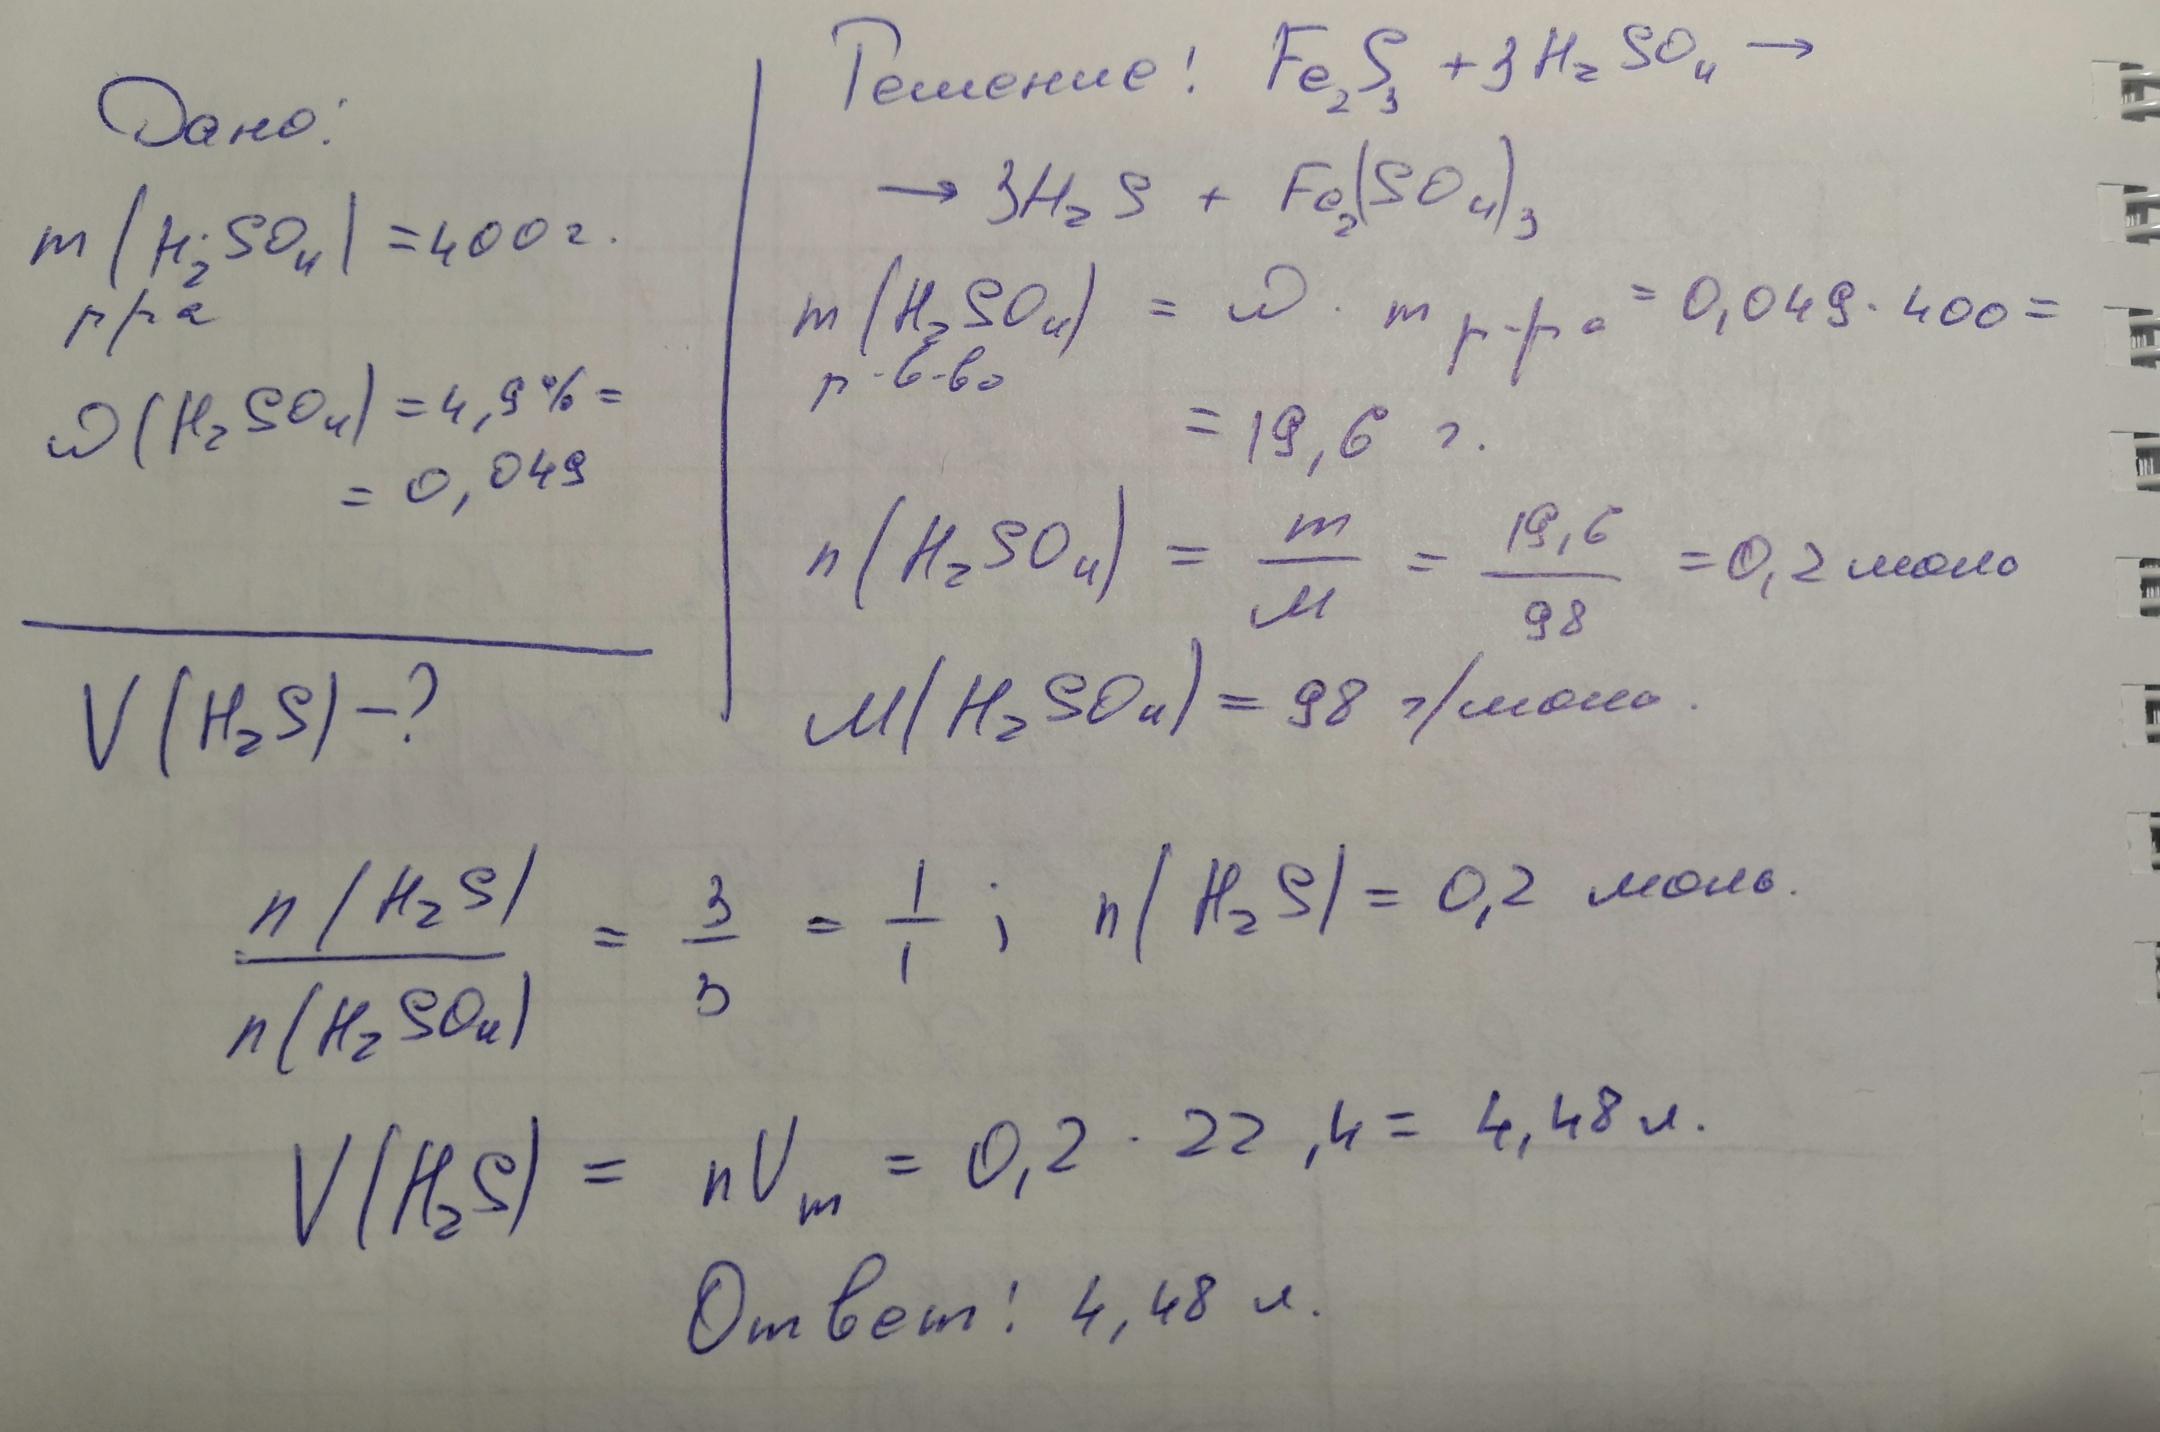 Дано:
m(H₂SO₄) = 400 г.
р-ра
ω(H₂SO₄) = 4,9% =
= 0,049
V(H₂S) - ?
Решение: Fe₂S₃ + 3H₂SO₄ →
→ 3H₂S + Fe₂(SO₄)₃
m(H₂SO₄) = ω · m р-ра = 0,049 · 400 =
р-в-во
= 19,6 г.
n(H₂SO₄) = m/M = 19,6/98 = 0,2 моль
M(H₂SO₄) = 98 г/моль.
n(H₂S)/n(H₂SO₄) = 3/3 = 1/1 ; n(H₂S) = 0,2 моль.
V(H₂S) = nVₘ = 0,2 · 22,4 = 4,48 л.
Ответ: 4,48 л.